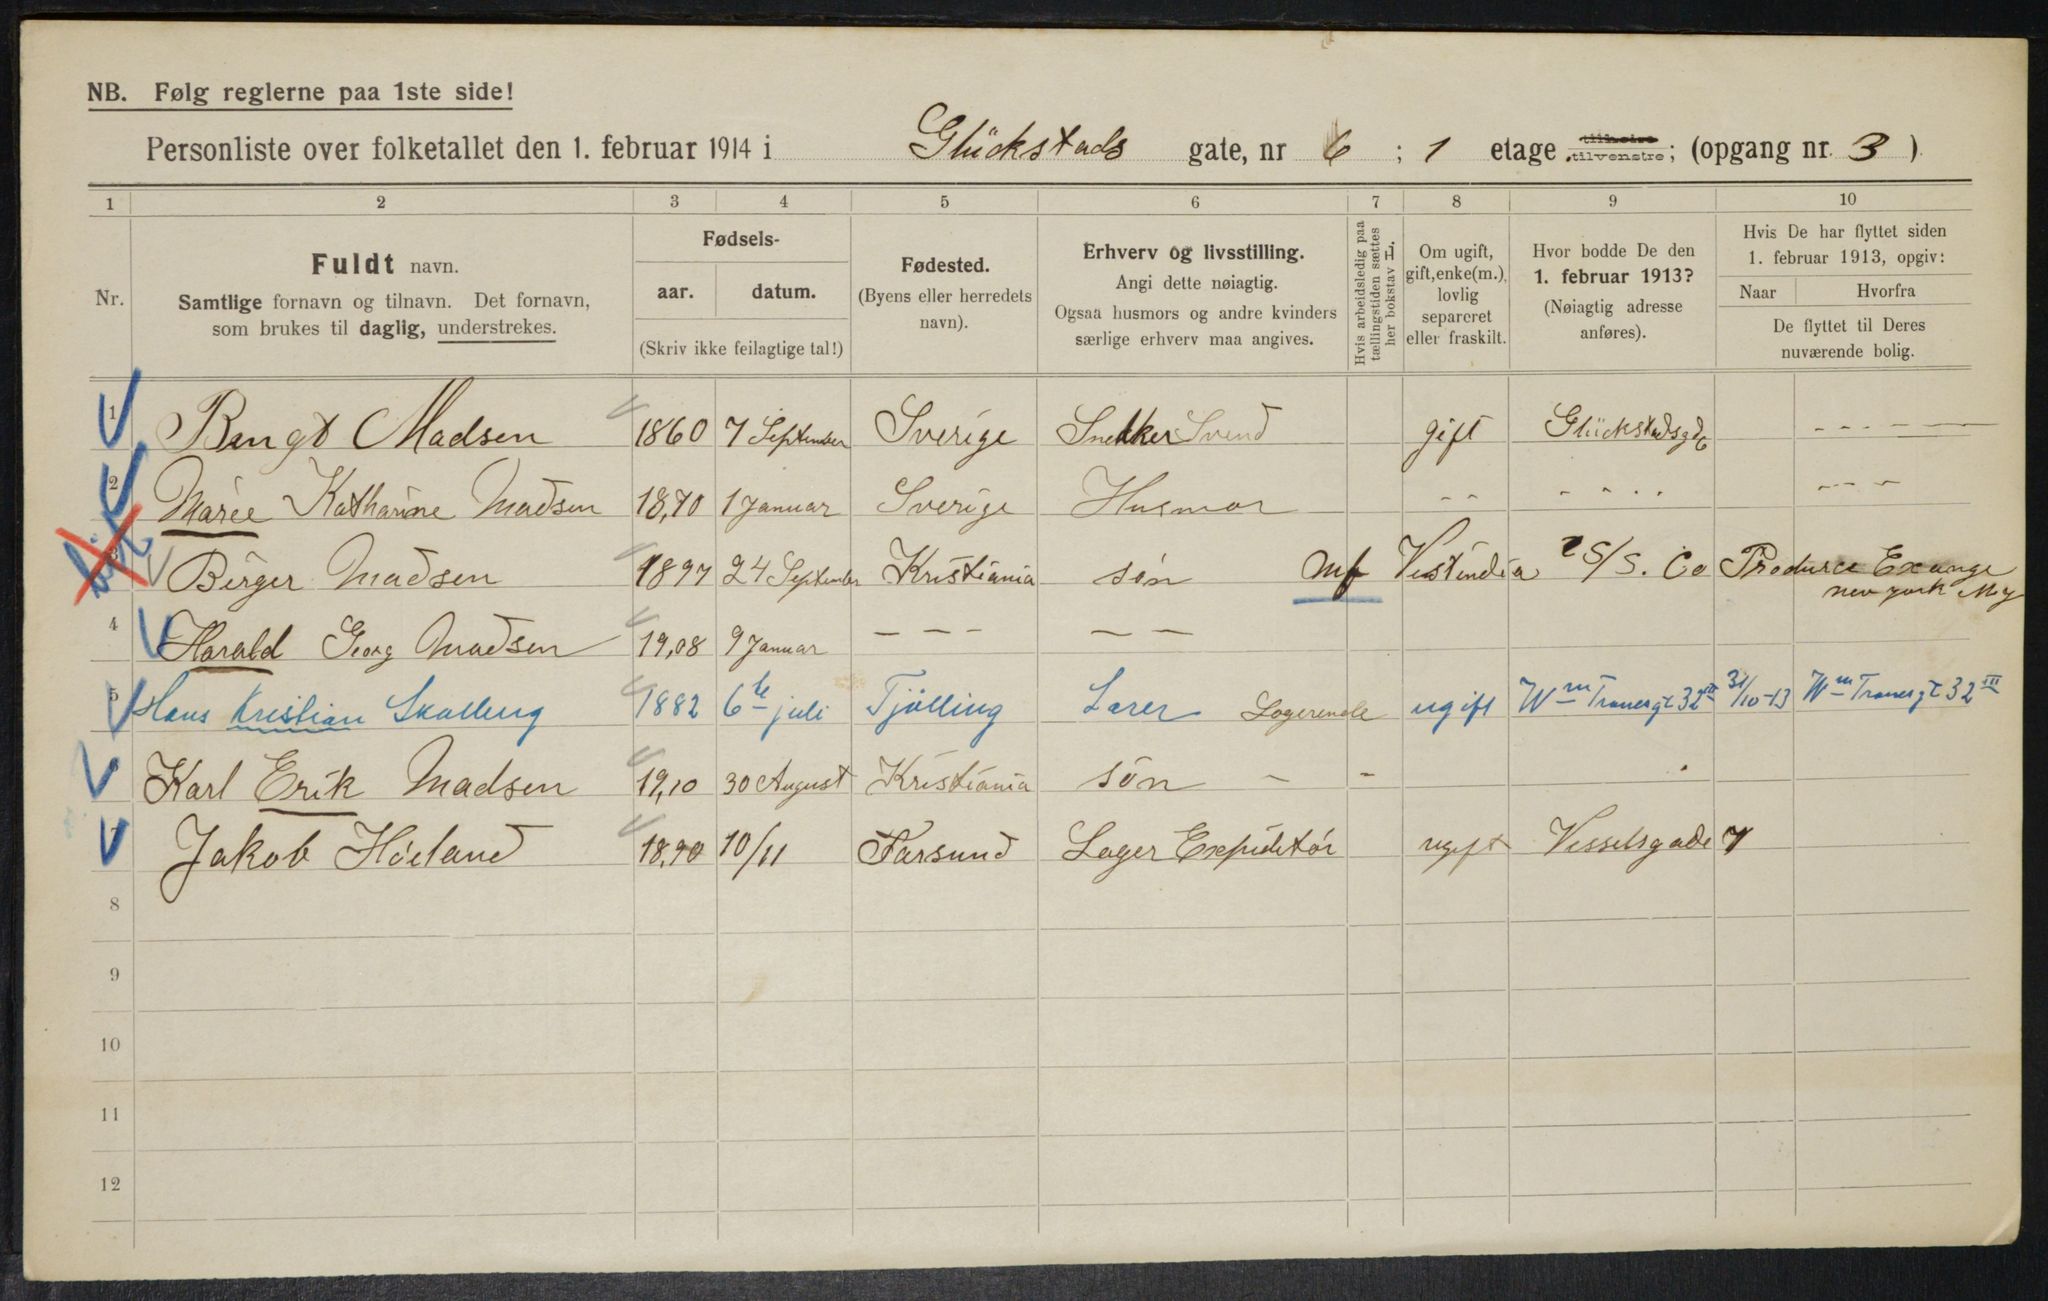 NB. Følg reglerne paa 1ste side!
Personliste over folketallet den 1. februar 1914 i Glückstads gate, nr 6 ; 1 etage tilhøire tilvenstre; (opgang nr. 3 )
1 2 3 4 5 6 7 8 9 10
Nr.
Fuldt navn.
Samtlige fornavn og tilnavn. Det fornavn,
som brukes til daglig, understrekes.
Fødsels-
aar. datum.
(Skriv ikke feilagtige tal!)
Fødested.
(Byens eller herredets
navn).
Erhverv og livsstilling.
Angi dette nøiagtig.
Ogsaa husmors og andre kvinders
særlige erhverv maa angives.
Hvis arbeidsledig paa
tællingstiden sættes
her bokstav L.
Om ugift,
gift, enke(m.),
lovlig
separeret
eller fraskilt.
Hvor bodde De den
1. februar 1913?
(Nøiagtig adresse
anføres).
Hvis De har flyttet siden
1. februar 1913, opgiv:
Naar Hvorfra
De flyttet til Deres
nuværende bolig.
1 Bengt Madsen 1860 7 September Sverige Snekker Svend gift Glückstadsgd 6 - - - - -
2 Marie Katharine Madsen 18,70 1 Januar Sverige Husmor - - - - - - - - -
3 Birger Madsen 1897 24 September Kristiania sön Mf Vestindia S/S. Co Produce Exange
new york
4 Harald Georg Madsen 19,08 9 Januar - - - - -
5 Hans Kristian Skalleng 1882 6te juli Tjølling Lærer Logerende ugift Wm Tranesgt 32III 31/10-13 Wm Tranesgt 32III
6 Karl Erik Madsen 19,10 30 August Kristiania sön - -
7 Jakob Höiland 18,90 10/11 Farsund Lager Expeditör ugift Vesselsgade 7
8
9
10
11
12